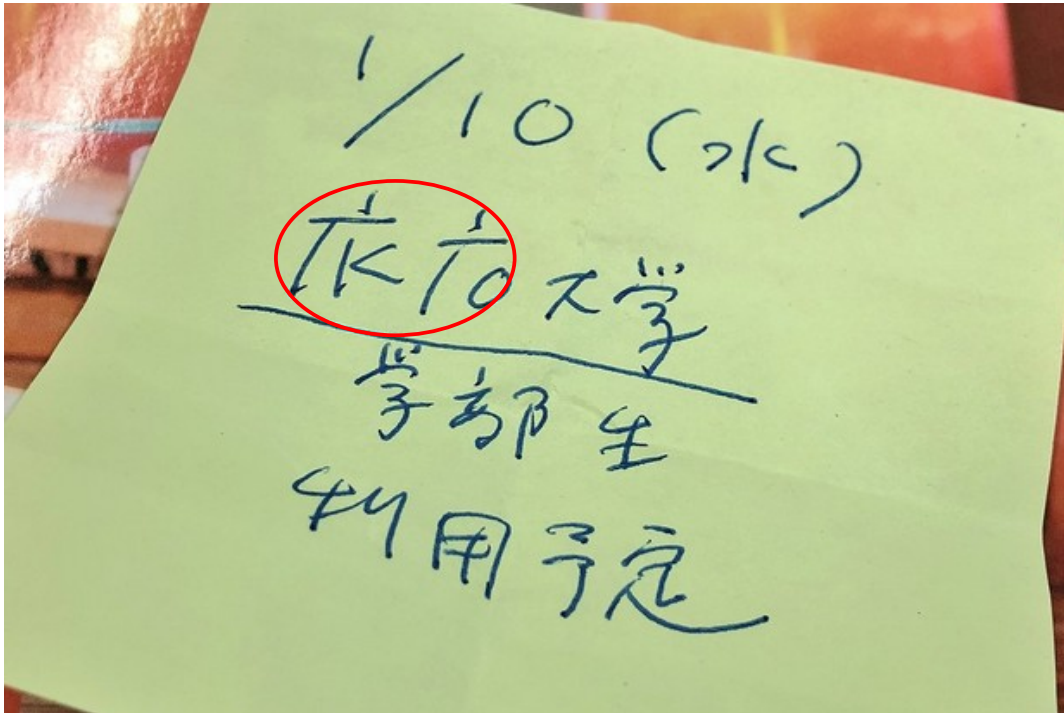 1/10 (水)
广K广O大学
学部生
利用予定